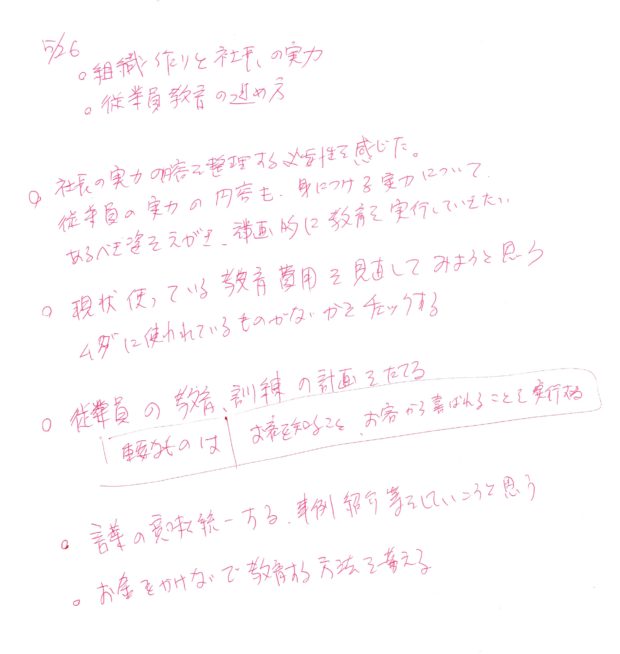 5/26
○ 組織作りと社長の実力
○ 従業員教育の進め方
○ 社長の実力の内容を整理する必要性を感じた。
従業員の実力の内容も、身につける実力について、
あるべき姿をえがき、計画的に教育を実行していきたい。
○ 現状使っている教育費用を見直してみようと思う
ムダに使われているものがないかをチェックする
○ 従業員の教育、訓練の計画をたてる
重要なものは お客を知ること、お客から喜ばれることを実行する
○ 言葉の意味統一する、事例紹介等をしていこうと思う
○ お金をかけないで教育する方法を考える